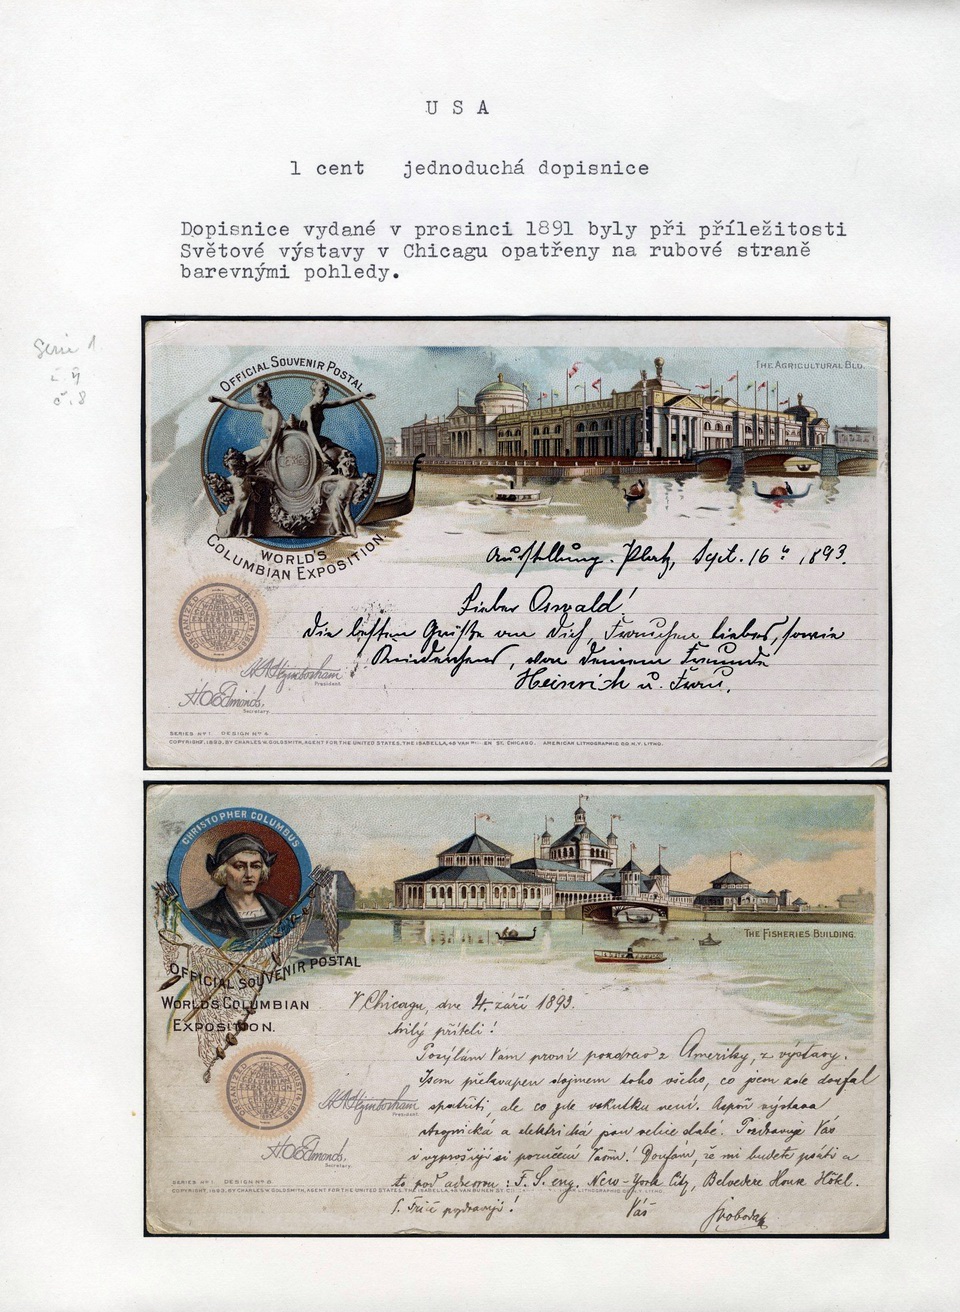 U S A
1 cent jednoduchá dopisnice
Dopisnice vydané v prosinci 1891 byly při příležitosti
Světové výstavy v Chicagu opatřeny na rubové straně
barevnými pohledy.
Serie 1
č. 4
č. 8
OFFICIAL SOUVENIR POSTAL
THE AGRICULTURAL BLD.
CERES
WORLD'S
COLUMBIAN EXPOSITION
Ausstellung. Platz, Sept. 16. 1893.
Lieber Oswald!
Die besten Grüße an Dich, Frauchen liebes, sowie
Kinderchens, von Deinem Freunde
Heinrich u. Frau.
ORGANIZED AUGUST
President.
Secretary.
SERIES No 1. DESIGN No 4.
COPYRIGHT, 1893, BY CHARLES W. GOLDSMITH, AGENT FOR THE UNITED STATES, THE ISABELLA, 48 VAN EN ST. CHICAGO. AMERICAN LITHOGRAPHIC CO. N.Y. LITHO.
CHRISTOPHER COLUMBUS
THE FISHERIES BUILDING.
OFFICIAL SOUVENIR POSTAL
WORLDS COLUMBIAN
EXPOSITION.
V Chicagu, dne 4. září 1893.
Milý příteli!
Posýlám Vám první pozdrav z Ameriky, z výstavy.
Jsem překvapen dojmem toho všeho, co jsem zde doufal
spatřiti, ale co zde vskutku není. Aspoň výstava
strojnická a elektrická jsou velice slabé. Pozdravuje Vás
a vyprošuji si poručení Vašim! Doufám, že mi budete psáti a
to pod adresou: F. S. eng. New-York City, Belvedere House Hôtel.
pozdravuji! Váš Svoboda
ORGANIZED AUGUST
President.
Secretary.
SERIES No 1. DESIGN No 8.
COPYRIGHT, 1893, BY CHARLES W. GOLDSMITH, AGENT FOR THE UNITED STATES, THE ISABELLA, 48 VAN BUREN ST. LITHOGRAPHIC LITHO.